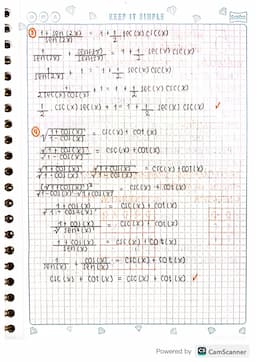 KEEP IT SIMPLE
③ 1 + sen(2x) / sen(2x) = 1 + 1/2 sec(x) csc(x)
1 / sen(2x) + sen(2x) / sen(2x) = 1 + 1/2 sec(x) csc(x)
1 / sen(2x) + 1 = 1 + 1/2 sec(x) csc(x)
1 / 2 sen(x) cos(x) + 1 = 1 + 1/2 sec(x) csc(x)
1/2 . csc(x) sec(x) + 1 = 1 + 1/2 sec(x) csc(x) ✓
④ √(1 + cos(x) / 1 - cos(x)) = csc(x) + cot(x)
√1 + cos(x) / √1 - cos(x) = csc(x) + cot(x)
√1 + cos(x) / √1 - cos(x) . √1 + cos(x) / √1 + cos(x) = csc(x) + cot(x)
(√1 + cos(x))² / √1 - cos(x) . √1 + cos(x) = csc(x) + cot(x)
1 + cos(x) / √1 - cos²(x) = csc(x) + cot(x)
1 + cos(x) / √sen²(x) = csc(x) + cot(x)
1 + cos(x) / sen(x) = csc(x) + cot(x)
1 / sen(x) + cos(x) / sen(x) = csc(x) + cot(x)
csc(x) + cot(x) = csc(x) + cot(x) ✓
Powered by CS CamScanner